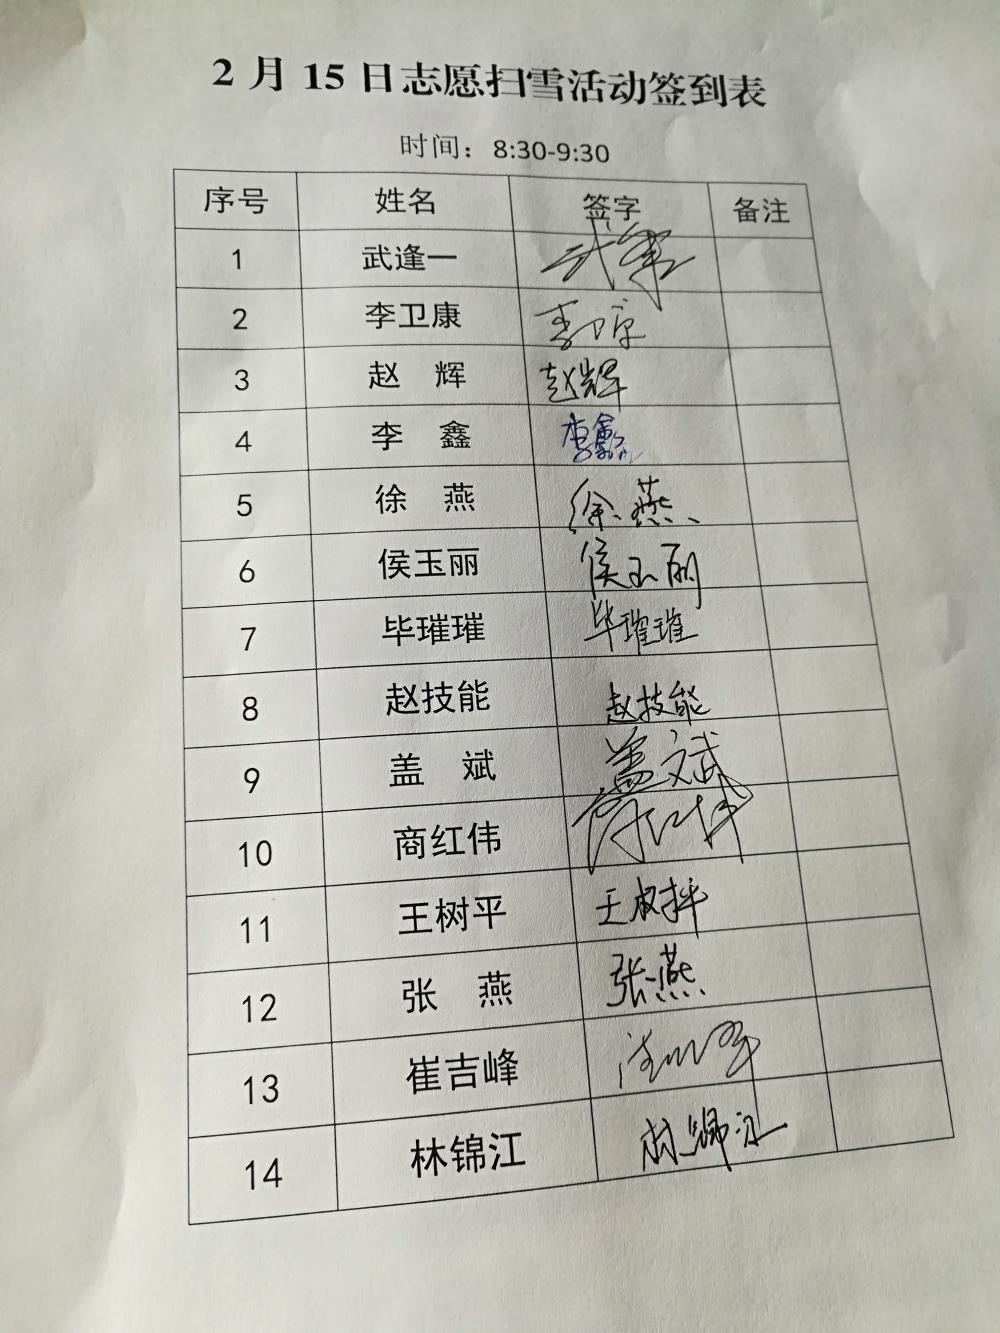 2 月 15 日志愿扫雪活动签到表
时间：8:30-9:30
序号 姓名 签字 备注
1 武逢一
2 李卫康 李卫康
3 赵 辉 赵辉
4 李 鑫 李鑫
5 徐 燕 徐燕
6 侯玉丽 侯玉丽
7 毕璀璀 毕璀璀
8 赵技能 赵技能
9 盖 斌 盖斌
10 商红伟
11 王树平 王树平
12 张 燕 张燕
13 崔吉峰
14 林锦江 林锦江